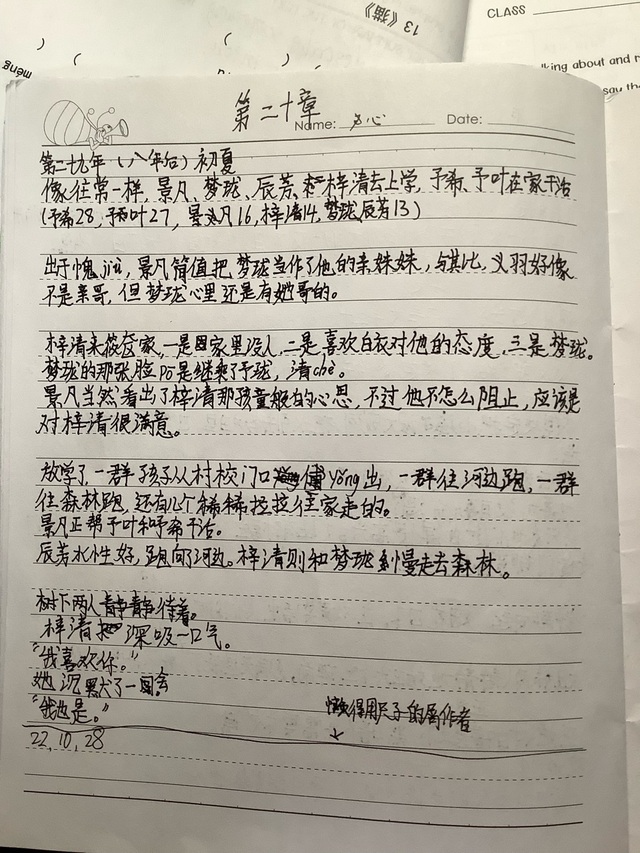 13《猫》
CLASS
lking about and r
say the
mēng
第二十章
Name: 点心 Date:
第二十九年（八年后）初夏
像往常一样，景凡、梦珑、辰芳、和梓清去上学，予希、予叶在家干活
（予希28，予叶27，景凡16，梓清14，梦珑辰芳13）
出于愧jiù，景凡简值把梦珑当作了他的亲妹妹，与其比，义羽好像
不是亲哥，但梦珑心里还是有她哥的。
梓清来筱苍家，一是因家里没人，二是喜欢白衣对他的态度，三是梦珑。
梦珑的那张脸pō是继乘了予球，清chè。
景凡当然看出了梓清那孩童般的心思，不过他不怎么阻止，应该是
对梓清很满意。
放学了，一群孩子从村校门口yōng出，一群往河边跑，一群
往森林跑，还有几个稀稀拉拉往家走的。
景凡正帮予叶和予希干活。
辰芳水性好，跑向了河边。梓清则和梦珑纠慢走去森林。
树下两人静静待着。
梓清深吸一口气。
“我喜欢你。”
她沉默了一回会
“我也是。”
懒得用尺子的写作者
22，10，28